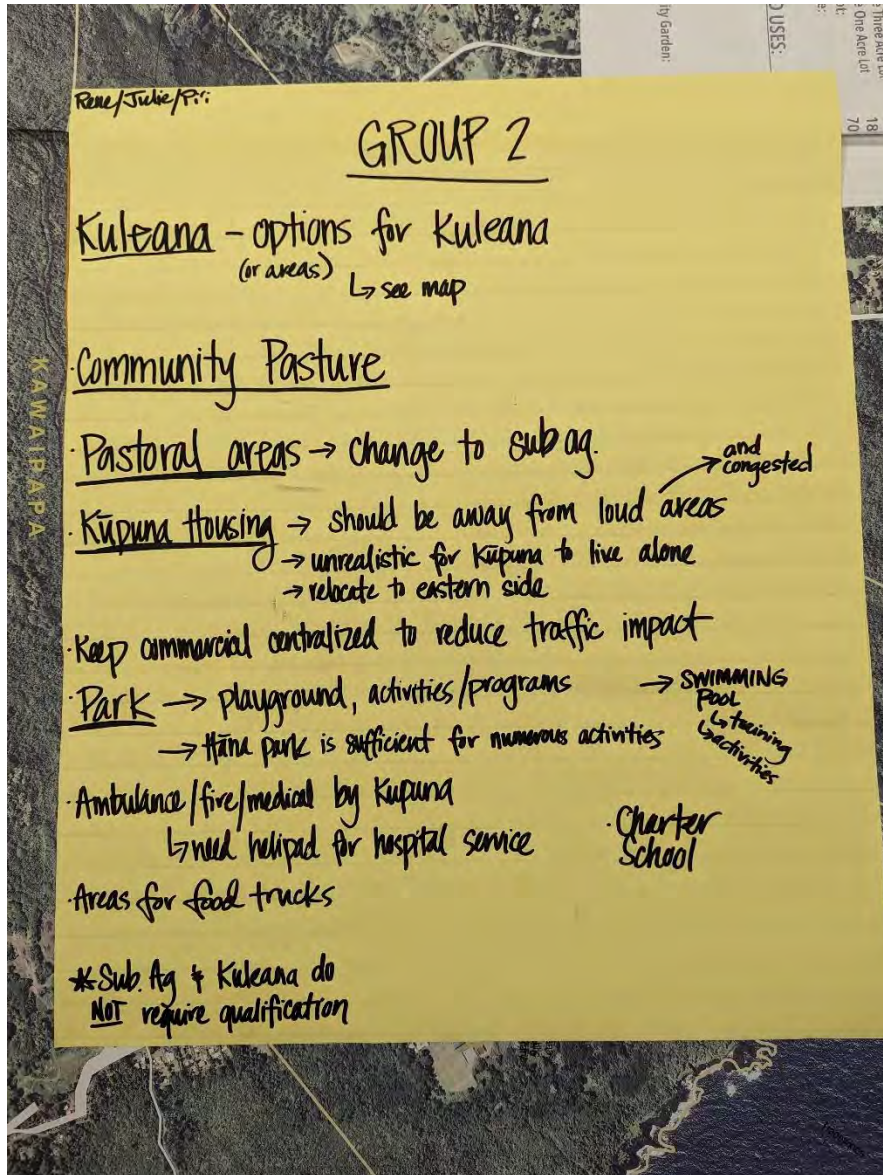 Three Acre Lot 18
One Acre Lot 70
USES:
ity Garden:
Rene/Julie/Piʻi
GROUP 2
Kuleana – options for Kuleana
(or areas)
↳ see map
· Community Pasture
· Pastoral areas → change to sub ag.
· Kūpuna Housing → should be away from loud areas → and congested
→ unrealistic for Kūpuna to live alone
→ relocate to eastern side
· Keep commercial centralized to reduce traffic impact
· Park → playground, activities/programs → SWIMMING
POOL
↳ training
↳ activities
→ Hāna park is sufficient for numerous activities
· Ambulance/fire/medical by Kupuna
↳ need helipad for hospital service
· Charter
School
· Areas for food trucks
* Sub. Ag & Kuleana do
NOT require qualification
KAWAIPAPA